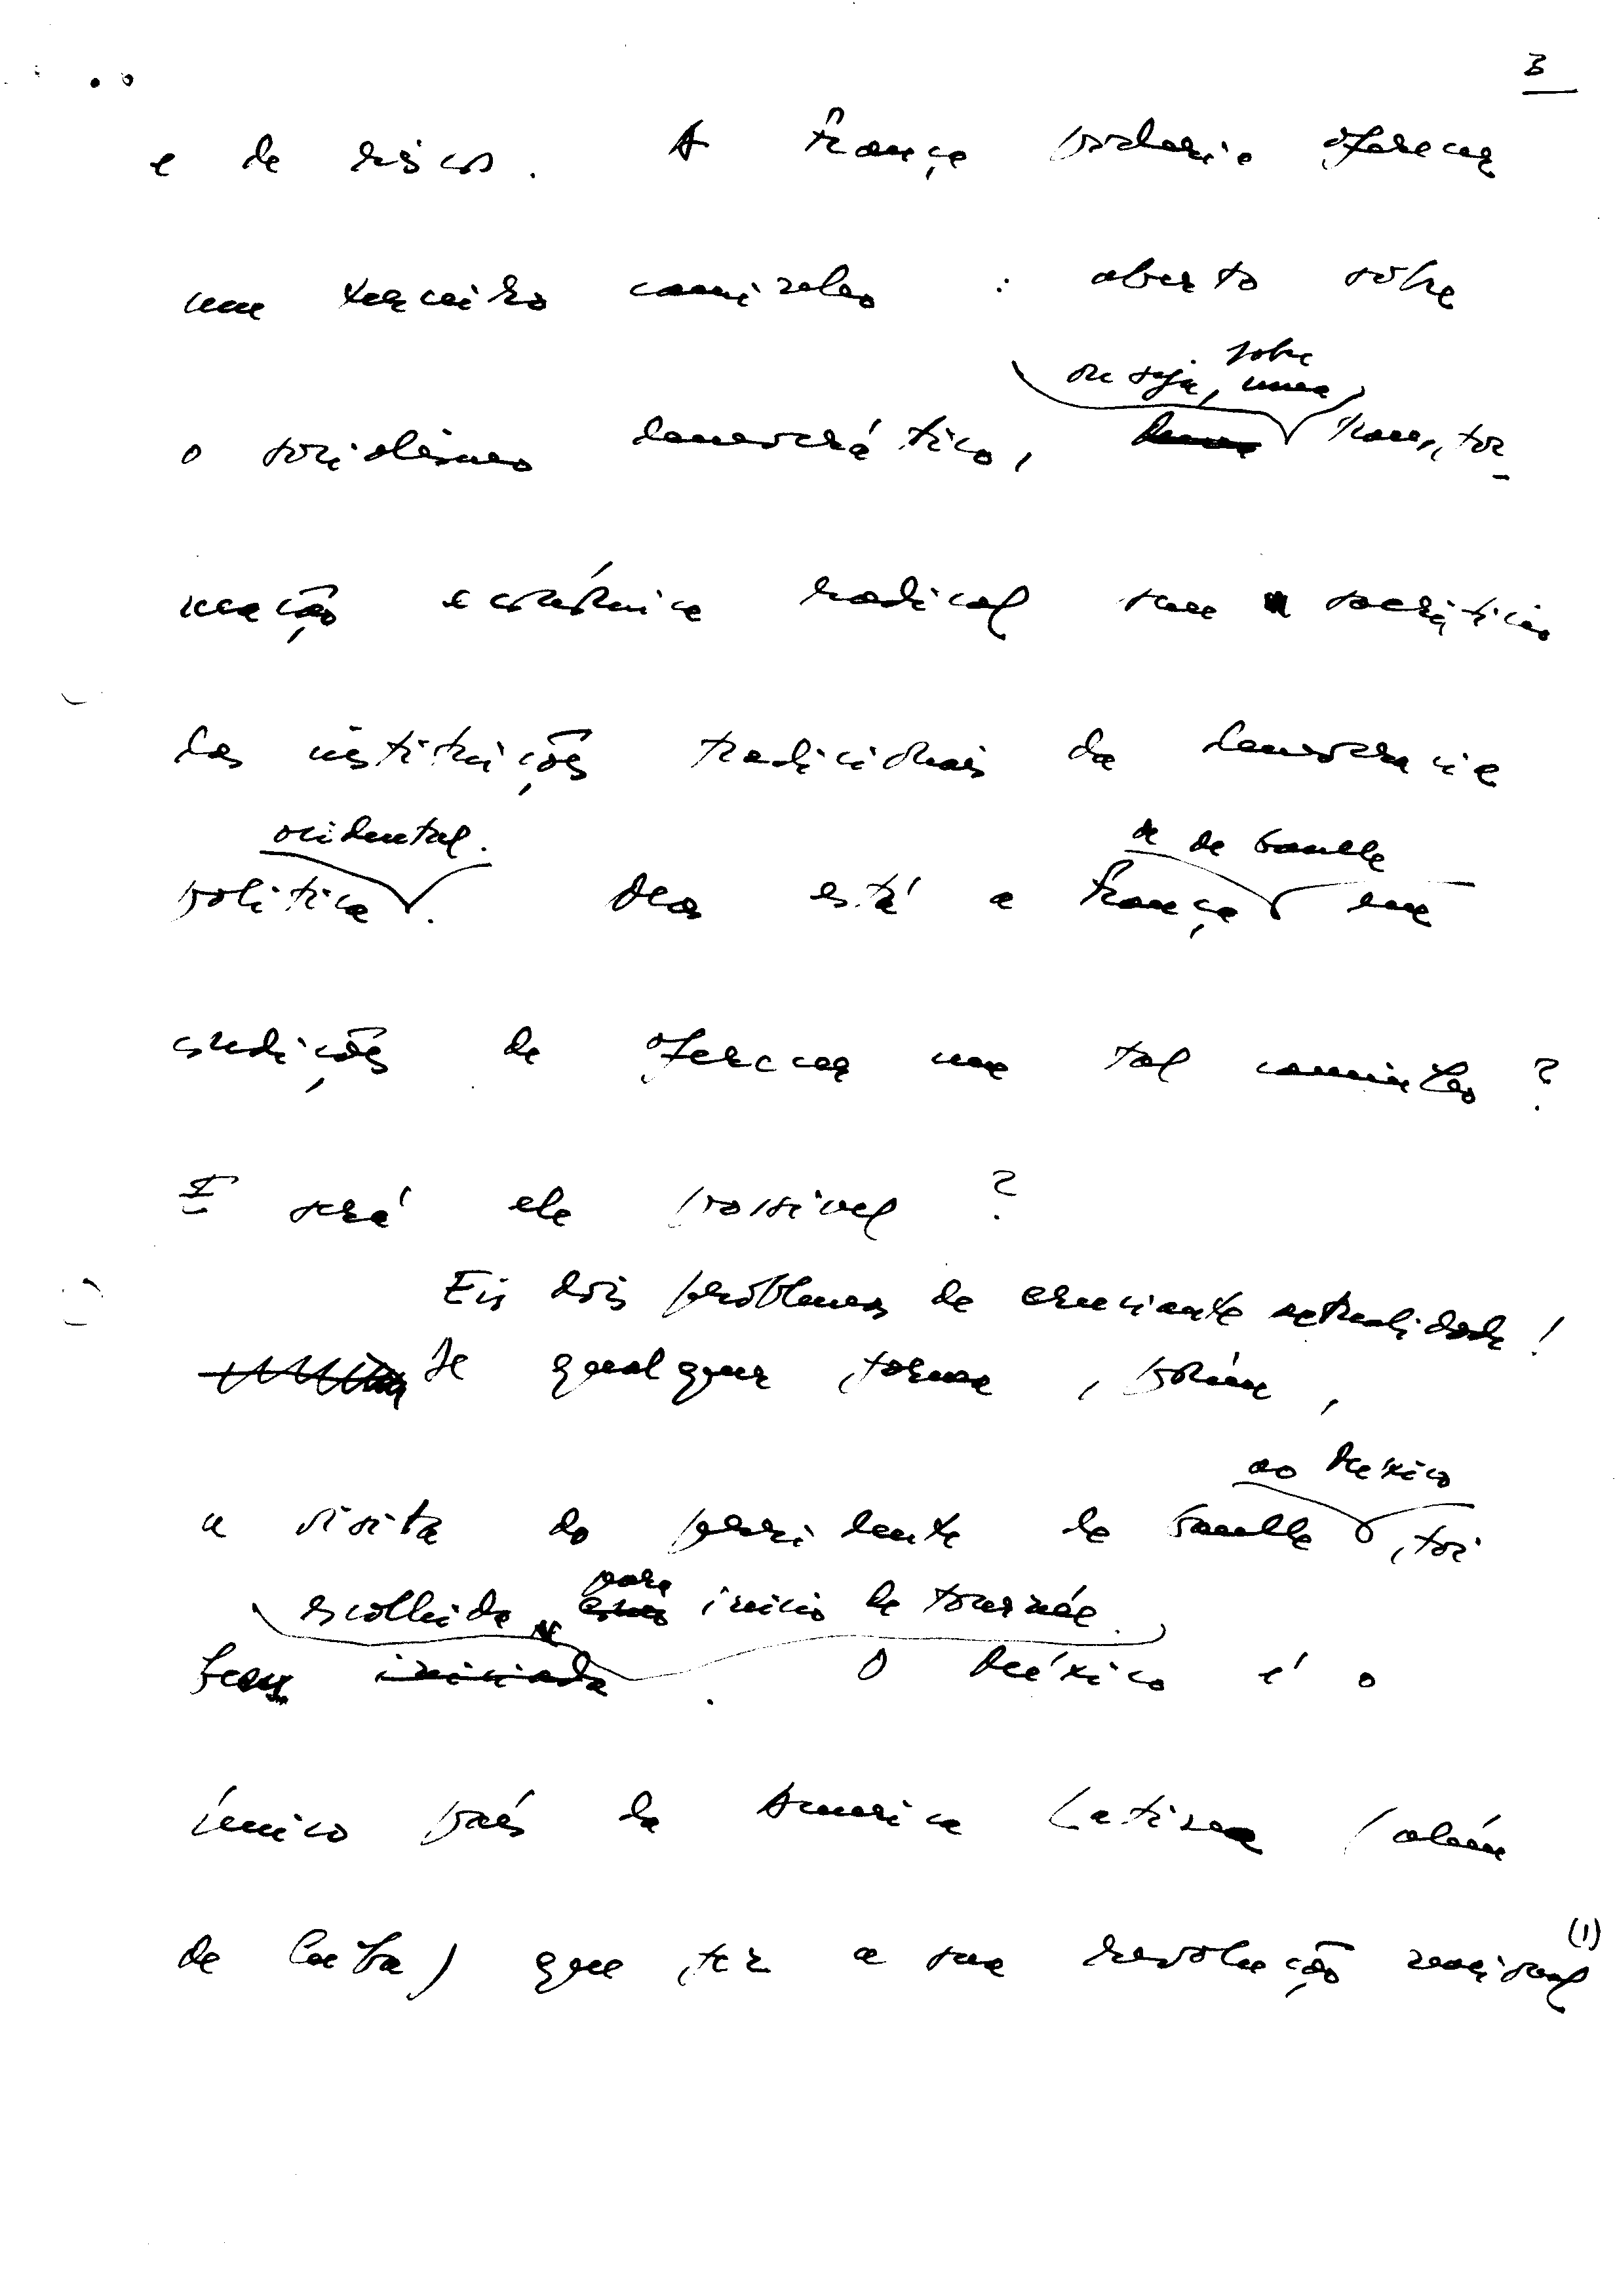 3
e de riscos. A França poderia oferecer
um terceiro caminho : aberto sobre
ou seja, sobre uma
o socialismo democrático, transfor-
mação económica radical sem sacrifício
das instituições tradicionais da democracia
ocidental. a de Gaulle
politica. Mas está a França em
condições de oferecer um tal caminho ?
E será ele possivel ?
Eis dois problemas de cruciante actualidade !
De qualquer forma, porém,
ao México
a visita do presidente de Gaulle, foi
escolhida para inicio de tournée.
bem iniciada. O México é o
único país da America Latina (além
de Cuba) que fez a sua revolução nacional (1)